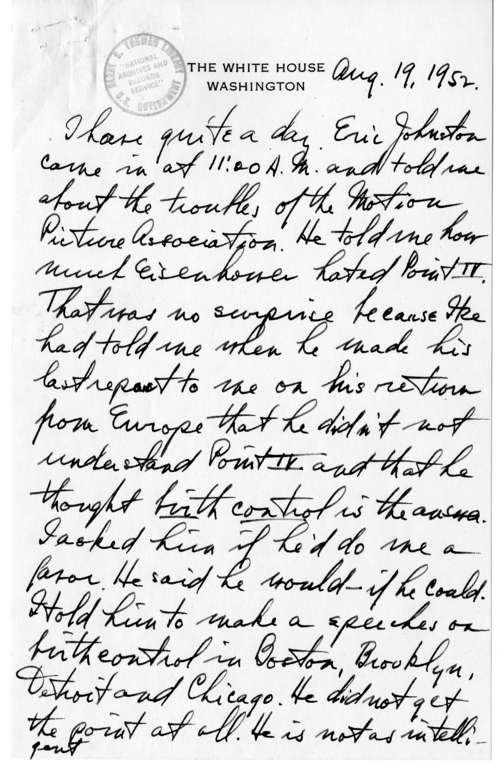 HARRY S. TRUMAN LIBRARY
"NATIONAL
ARCHIVES AND
RECORDS
SERVICE"
U.S. GOVERNMENT
THE WHITE HOUSE
WASHINGTON
Aug. 19, 1952.
I have quite a day. Eric Johnston
came in at 11:00 A.M. and told me
about the troubles of the Motion
Picture Association. He told me how
much Eisenhower hated Point IV.
That was no surprise because Ike
had told me when he made his
last report to me on his return
from Europe that he didn't not
understand Point IV and that he
thought birth control is the answer.
I asked him if he'd do me a
favor. He said he would—if he could.
I told him to make a speeches on
birth control in Boston, Brooklyn,
Detroit and Chicago. He did not get
the point at all. He is not as intelli-
gent